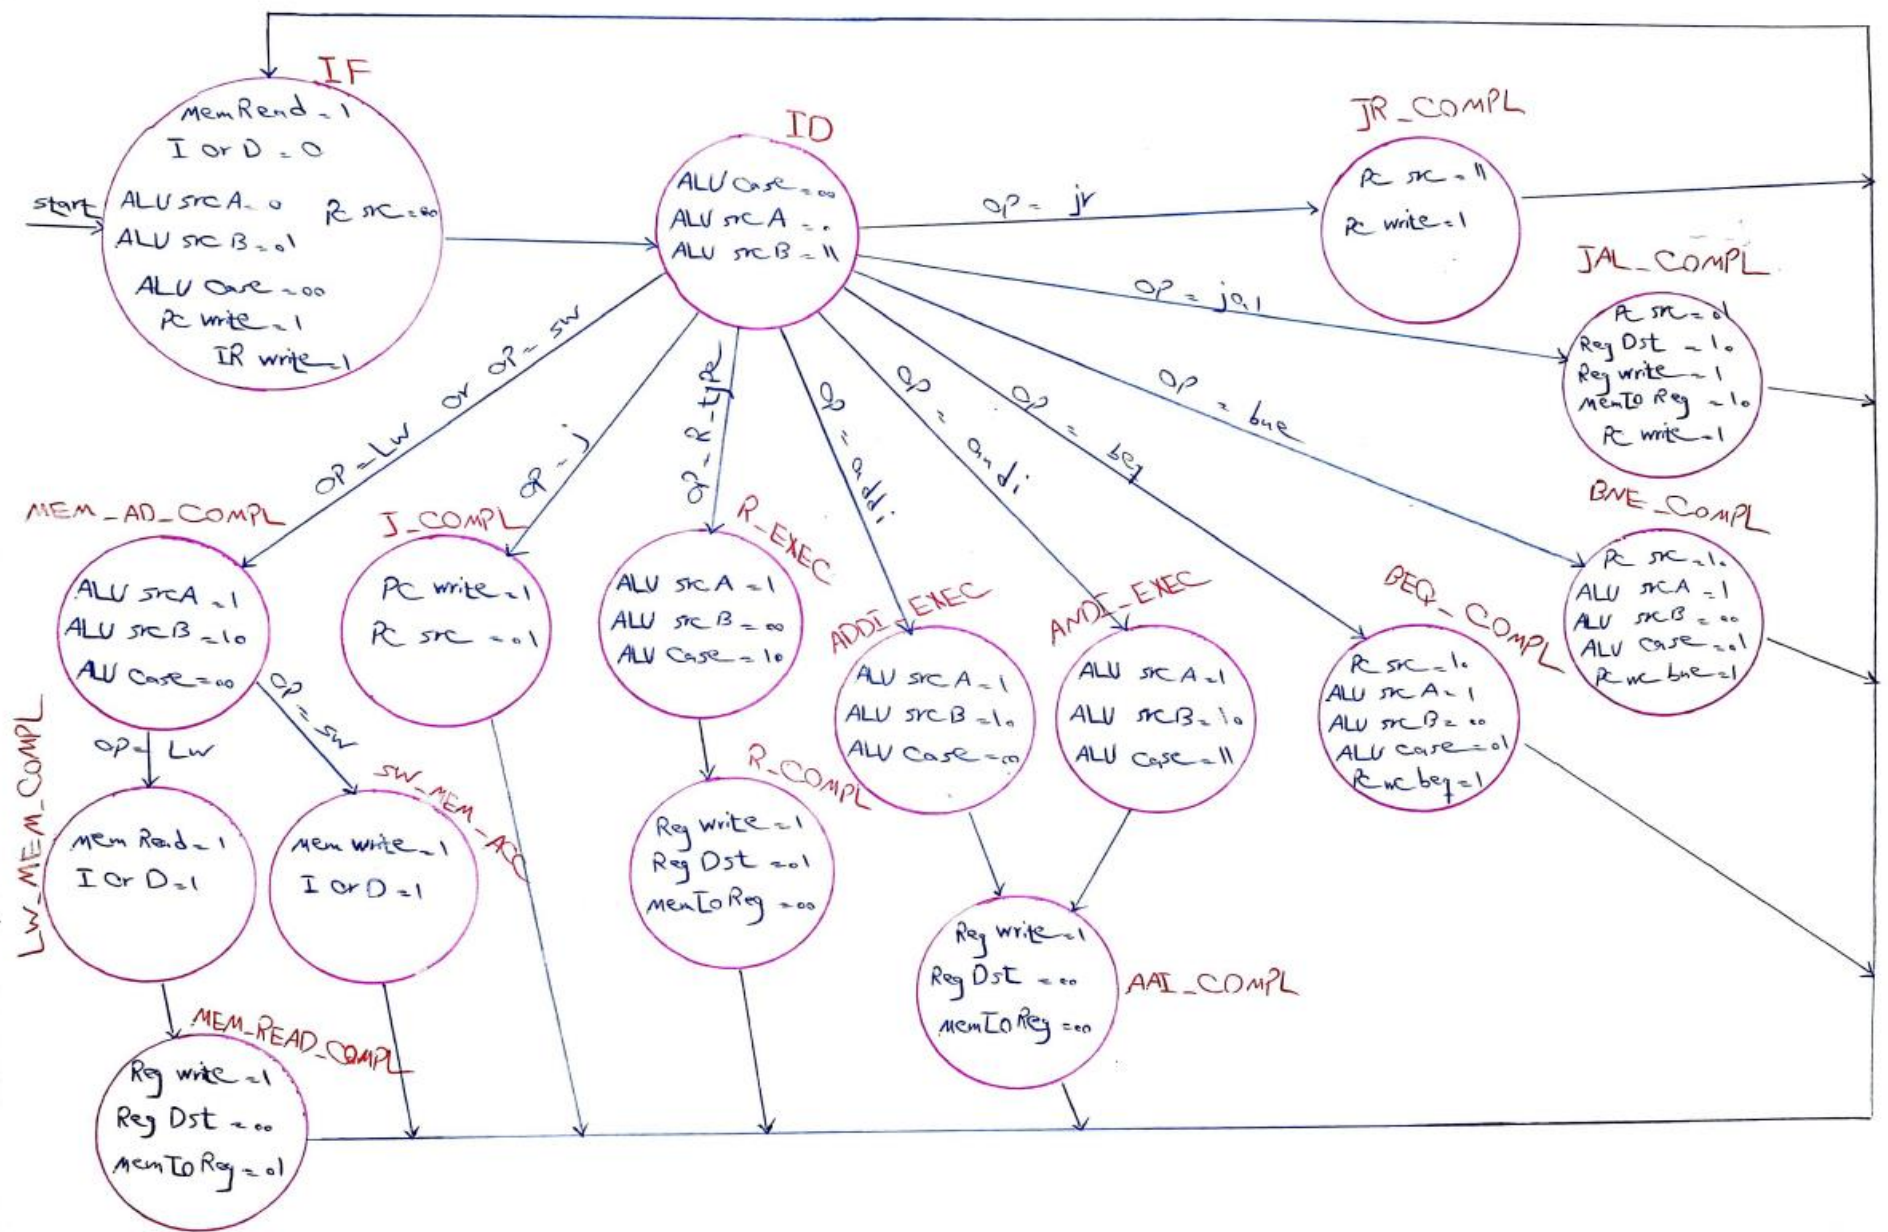 IF
MemRead = 1
I or D = 0
ALU src A = 0
PC src = 00
ALU src B = 01
ALU Case = 00
PC write = 1
IR write = 1
start
ID
ALU Case = 00
ALU src A = 0
ALU src B = 11
OP = jr
JR_COMPL
PC src = 11
PC write = 1
OP = jal
JAL_COMPL
PC src = 01
Reg Dst = 10
Reg write = 1
MemToReg = 10
PC write = 1
OP = bne
BNE_COMPL
PC src = 10
ALU src A = 1
ALU src B = 00
ALU Case = 01
PC wc bne = 1
OP = beq
BEQ_COMPL
PC src = 10
ALU src A = 1
ALU src B = 00
ALU Case = 01
PC wc beq = 1
OP = andi
ANDI_EXEC
ALU src A = 1
ALU src B = 10
ALU Case = 11
OP = addi
ADDI_EXEC
ALU src A = 1
ALU src B = 10
ALU Case = 00
AAI_COMPL
Reg write = 1
Reg Dst = 00
MemToReg = 00
OP = R-type
R_EXEC
ALU src A = 1
ALU src B = 00
ALU Case = 10
R_COMPL
Reg Write = 1
Reg Dst = 01
MemToReg = 00
OP = j
J_COMPL
PC write = 1
PC src = 01
OP = Lw or OP = sw
MEM_AD_COMPL
ALU src A = 1
ALU src B = 10
ALU Case = 00
OP = Lw
LW_MEM_COMPL
Mem Read = 1
I or D = 1
OP = sw
SW_MEM_ACC
Mem write = 1
I or D = 1
MEM_READ_COMPL
Reg write = 1
Reg Dst = 00
MemToReg = 01